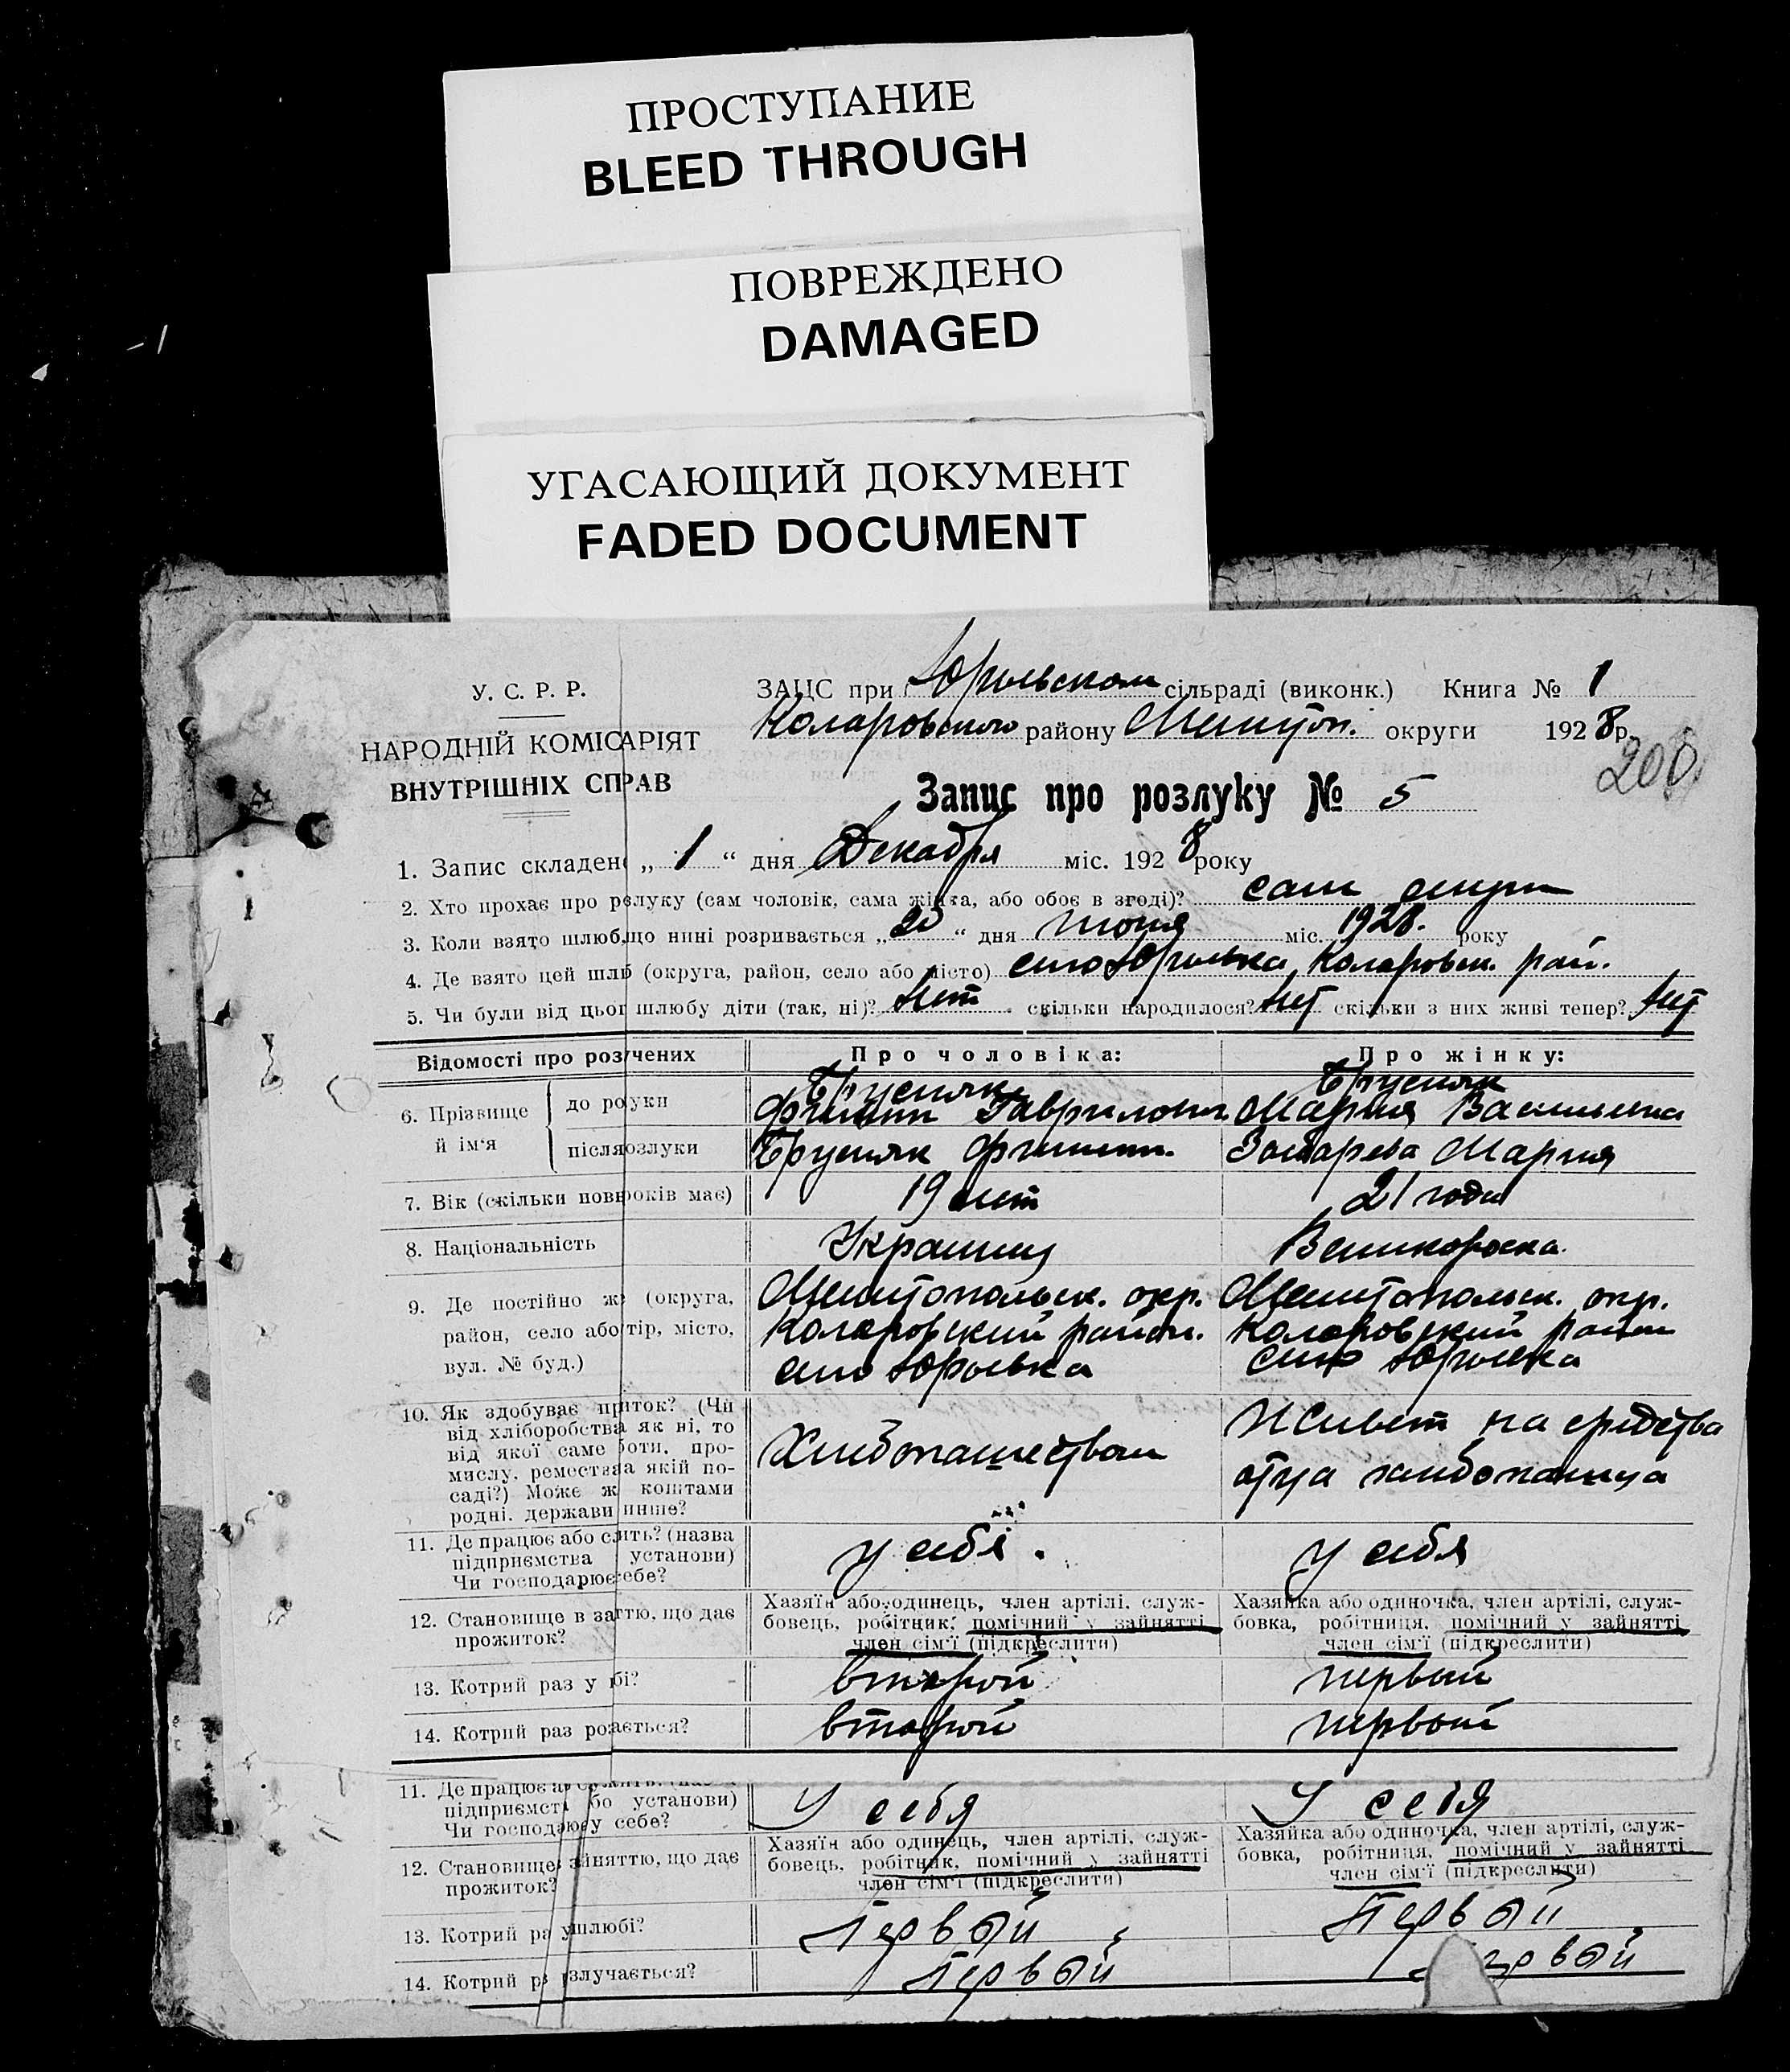 ПРОСТУПАНИЕ
BLEED THROUGH
ПОВРЕЖДЕНО
DAMAGED
УГАСАЮЩИЙ ДОКУМЕНТ
FADED DOCUMENT
У. С. Р. Р.
НАРОДНІЙ КОМІСАРІЯТ
ВНУТРІШНІХ СПРАВ
ЗАЦС при Юрьевском сільраді (виконк.) Книга № 1
Коларовского району Мелитоп. округи 1928р.
200
Запис про розлуку № 5
1. Запис складен „ 1 “ дня Декабря міс. 1928 року
2. Хто прохає про розлуку (сам чоловік, сама жінка, або обоє в згоді)? сам
3. Коли взято шлюб, що нині розривається „20“ дня июня міс. 1928. року
4. Де взято цей шлюб (округа, район, село або місто) село Юрьевка, Коларовск. рай.
5. Чи були від цього шлюбу діти (так, ні)? Нет скільки народилося? Нет скільки з них живі тепер? Нет
Відомості про розлучених
Про чоловіка:
Про жінку:
6. Прізвище й ім'я
до розлуки
Брусняк Филипп Гаврилович
Брусняк Мария Васильевна
після розлуки
Брусняк Филипп.
Мария
7. Вік (скільки повн. років має)
19 лет
21 года
8. Національність
Украинец
Великороска.
9. Де постійно жив (округа,
район, село або хутір, місто,
вул. № буд.)
Мелитопольск. окр.
Коларовский район.
село Юрьевка
Мелитопольск. окр.
Коларовский район
село Юрьевка
10. Як здобуває прожиток? (Чи
від хліборобства, як ні, то
від якої саме роботи, про-
мислу, ремества, на якій по-
саді?) Може живе коштами
родні, держави інше?
Хлебопашеством
Живет на средства
отца хлебопашца
11. Де працює або служить? (назва
підприємства установи)
Чи господарює у себе?
у себя.
у себя
12. Становище в занятті, що дає
прожиток?
Хазяїн або одинець, член артілі, служ-
бовець, робітник, помічний у зайнятті
член сім'ї (підкреслити)
Хазяйка або одиночка, член артілі, служ-
бовка, робітниця, помічний у зайнятті
член сім'ї (підкреслити)
13. Котрий раз у шлюбі?
второй
первый
14. Котрий раз розлучається?
второй
первый
11. Де працює або служить? (назва
підприємст або установи)
Чи господарює у себе?
У себя
У себя
12. Становище зайняттю, що дає
прожиток?
Хазяїн або одинець, член артілі, служ-
бовець, робітник, помічний у зайнятті
член сім'ї (підкреслити)
Хазяйка або одиночка, член артілі, служ-
бовка, робітниця, помічний у зайнятті
член сім'ї (підкреслити)
13. Котрий раз у шлюбі?
Первый
Первый
14. Котрий раз розлучається?
Первый
Первый